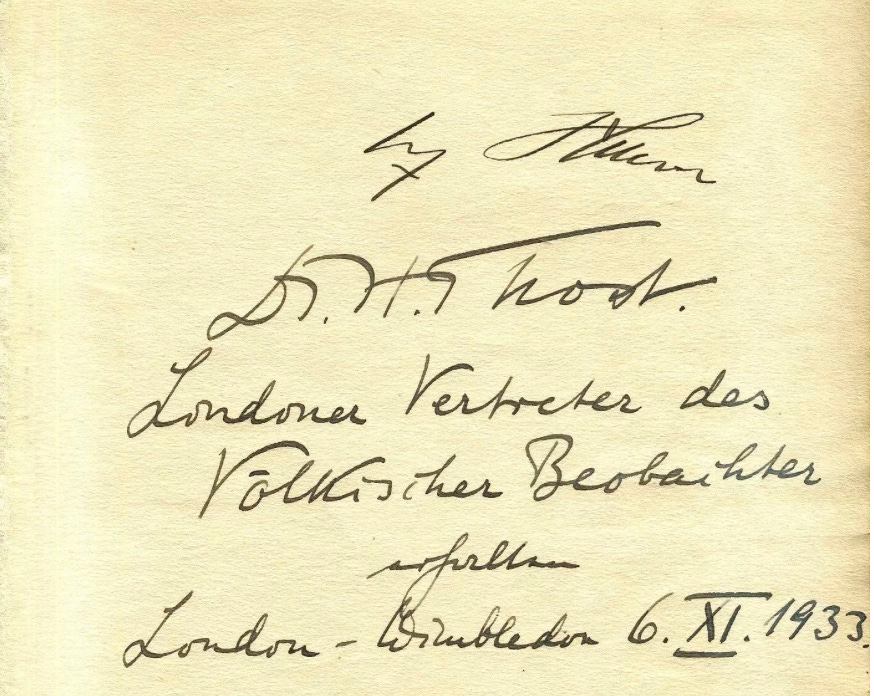 Dr. H. Thost.
Londoner Vertreter des
Völkischer Beobachter
erhalten
London - Wimbledon 6. XI. 1933.